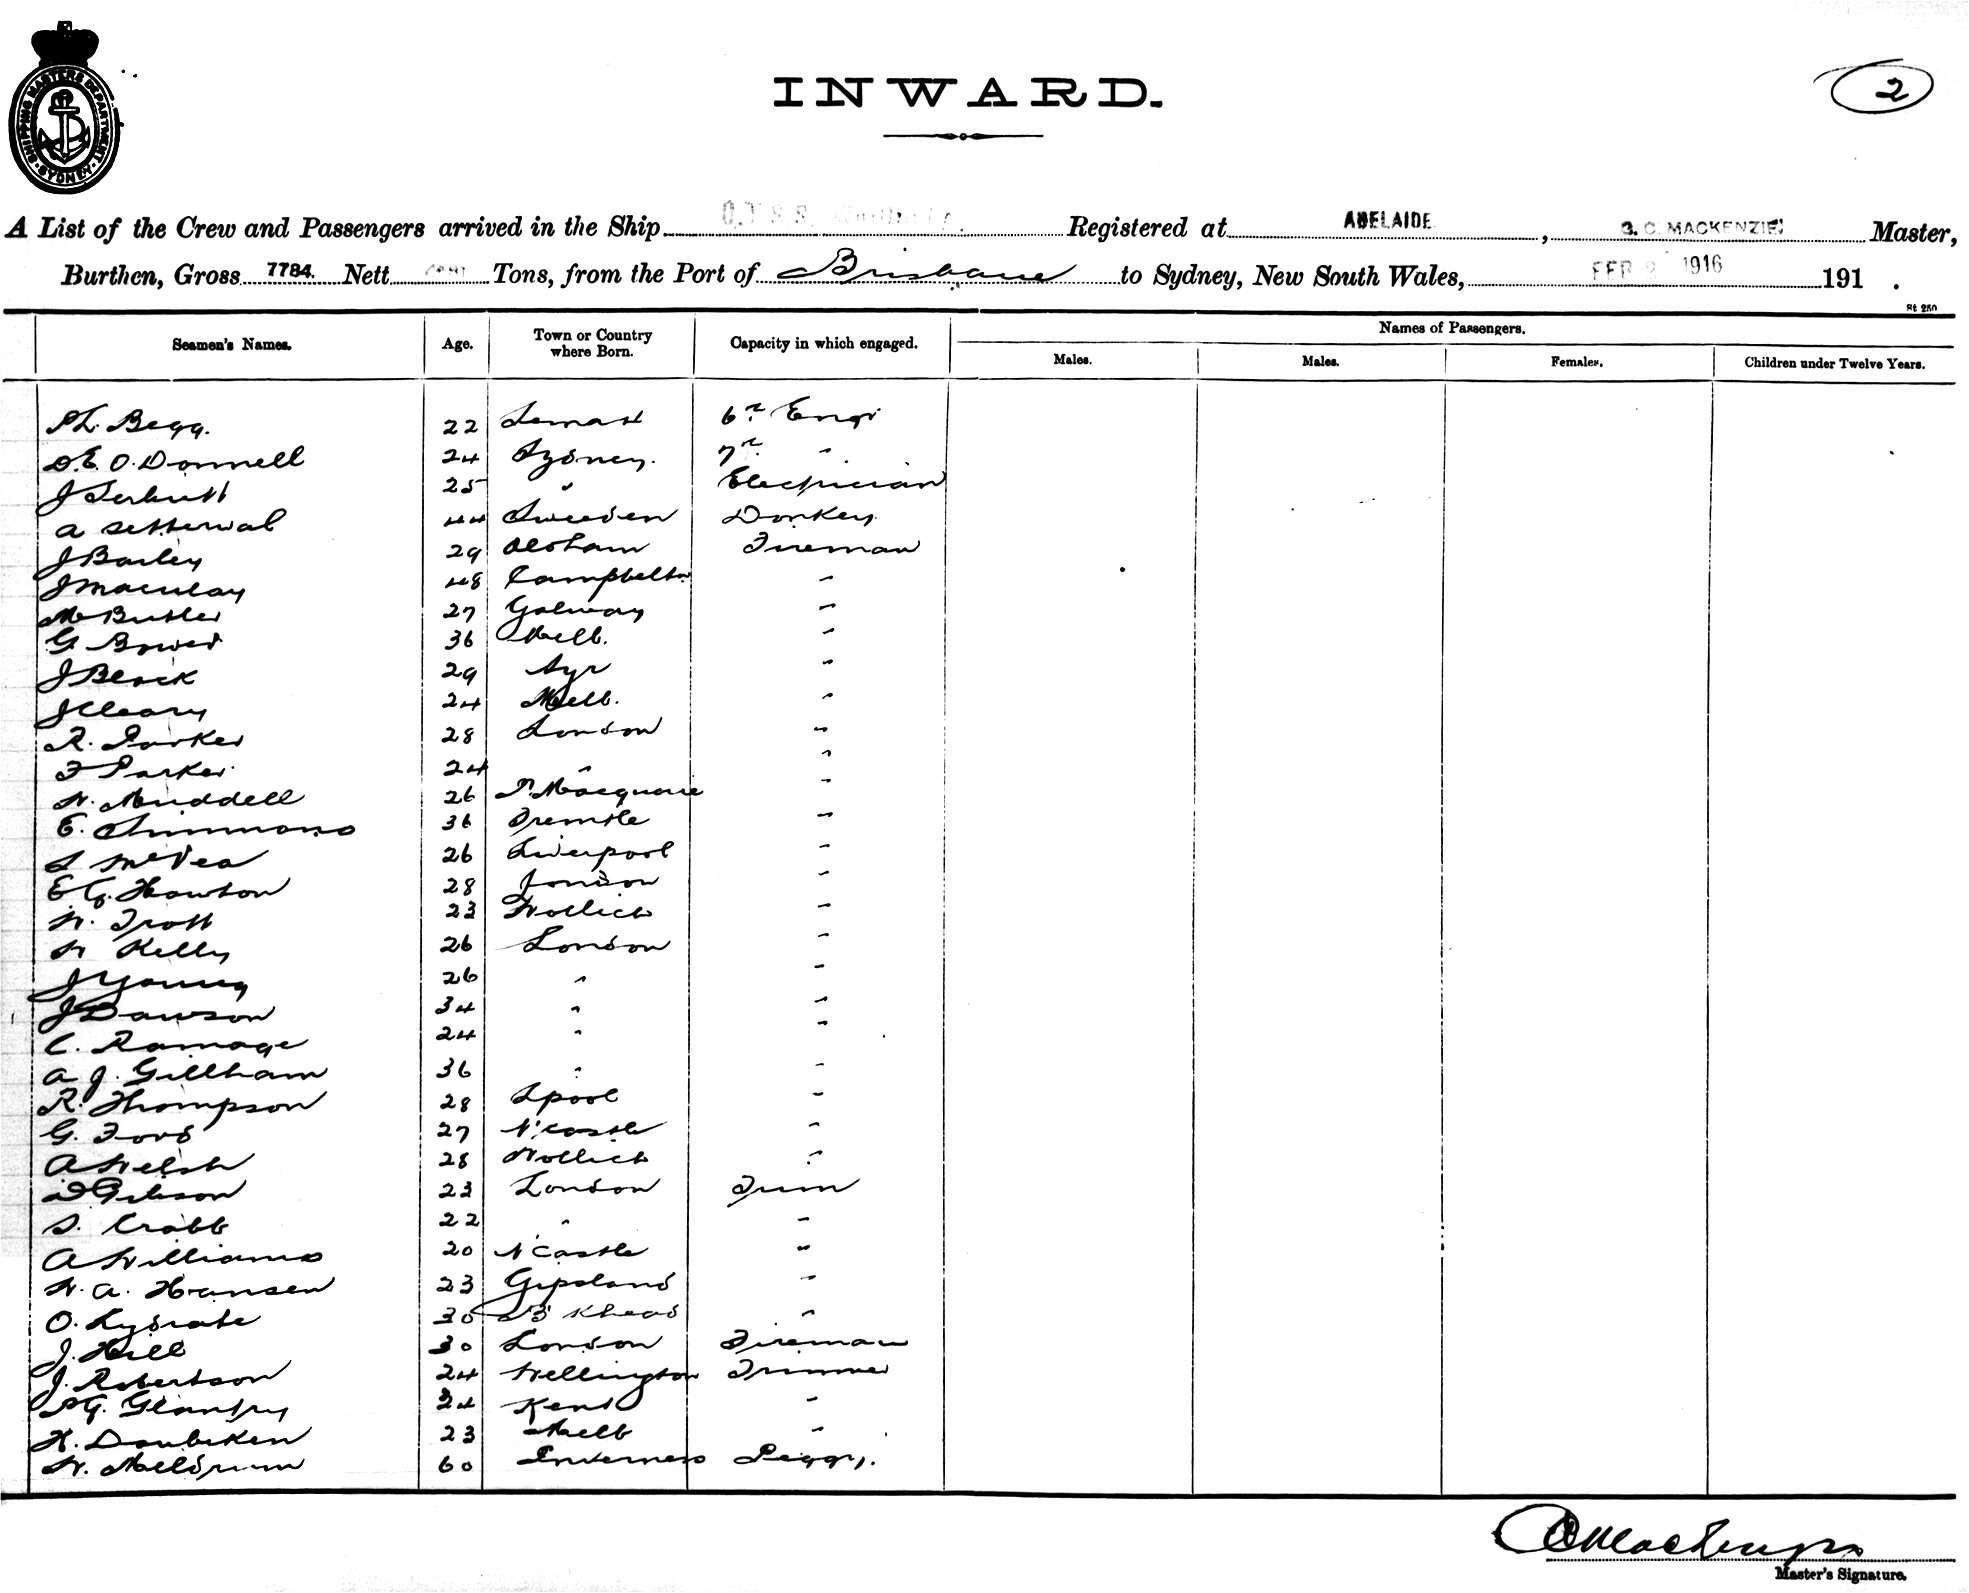 SHIPPING MASTERS DEPARTMENT. SYDNEY
INWARD.
2
A List of the Crew and Passengers arrived in the Ship Registered at ADELAIDE, C. MACKENZIE Master,
Burthen, Gross 7784. Nett Tons, from the Port of Brisbane to Sydney, New South Wales, FEB 1916 191 .
St 250
Seamen's Names. Age. Town or Country where Born. Capacity in which engaged. Names of Passengers.
Males. Males. Females. Children under Twelve Years.
Begg. 22 6th Engr
D.E. O.Donnell 24 Sydney. 7th "
J 25 " Electrician
a Setterwal 44 Sweeden Donkey
J Barley 29 Oldham Fireman
J Maculay 48 Campbeltn "
M Butler 27 Galway "
G Bower 36 Melb. "
J Black 29 Ayr "
J Cleary 24 Melb. "
R. Parker 28 London "
F Parker 24 " "
W. Muddell 26 P. Macquarie "
E. Simmons 36 "
S McVea 26 Liverpool "
E G. Hawton 28 London "
W. Trott 23 Wollich "
W Kelly 26 London "
J Young 26 " "
J Dawson 34 " "
C. Ramage 24 " "
A J. Gillham 36 " "
R. Thompson 28 Lpool "
G. Ford 27 N'Castle "
A Welsh 28 Wollich "
D Gibson 23 London Trim
S. Crabb 22 " "
A Williams 20 N'Castle "
W. A. Hansen 23 Gipsland "
O. Lydiate 30 B'Khead "
J. Hill 30 London Fireman
J. Robertson 24 Wellington Trimmer
G. 24 Kent "
H. Doubeken 23 Melb "
W. Meldrum 60 Inverness Peggy.
C Mackenzie
Master's Signature.